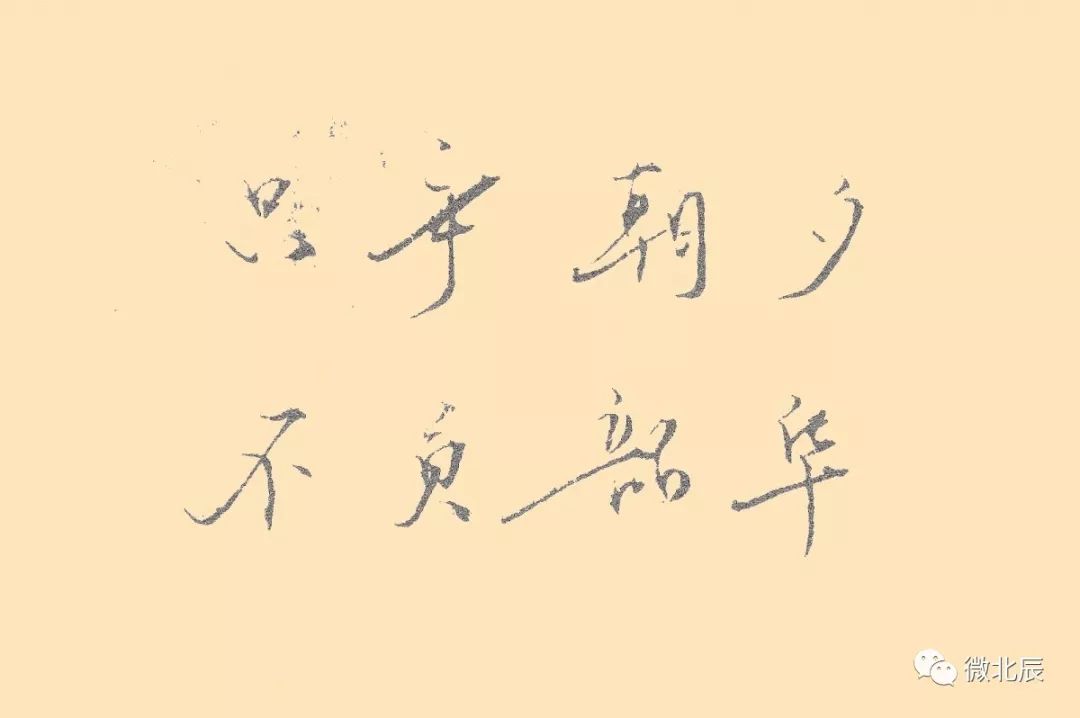 只争朝夕
不负韶华
微北辰